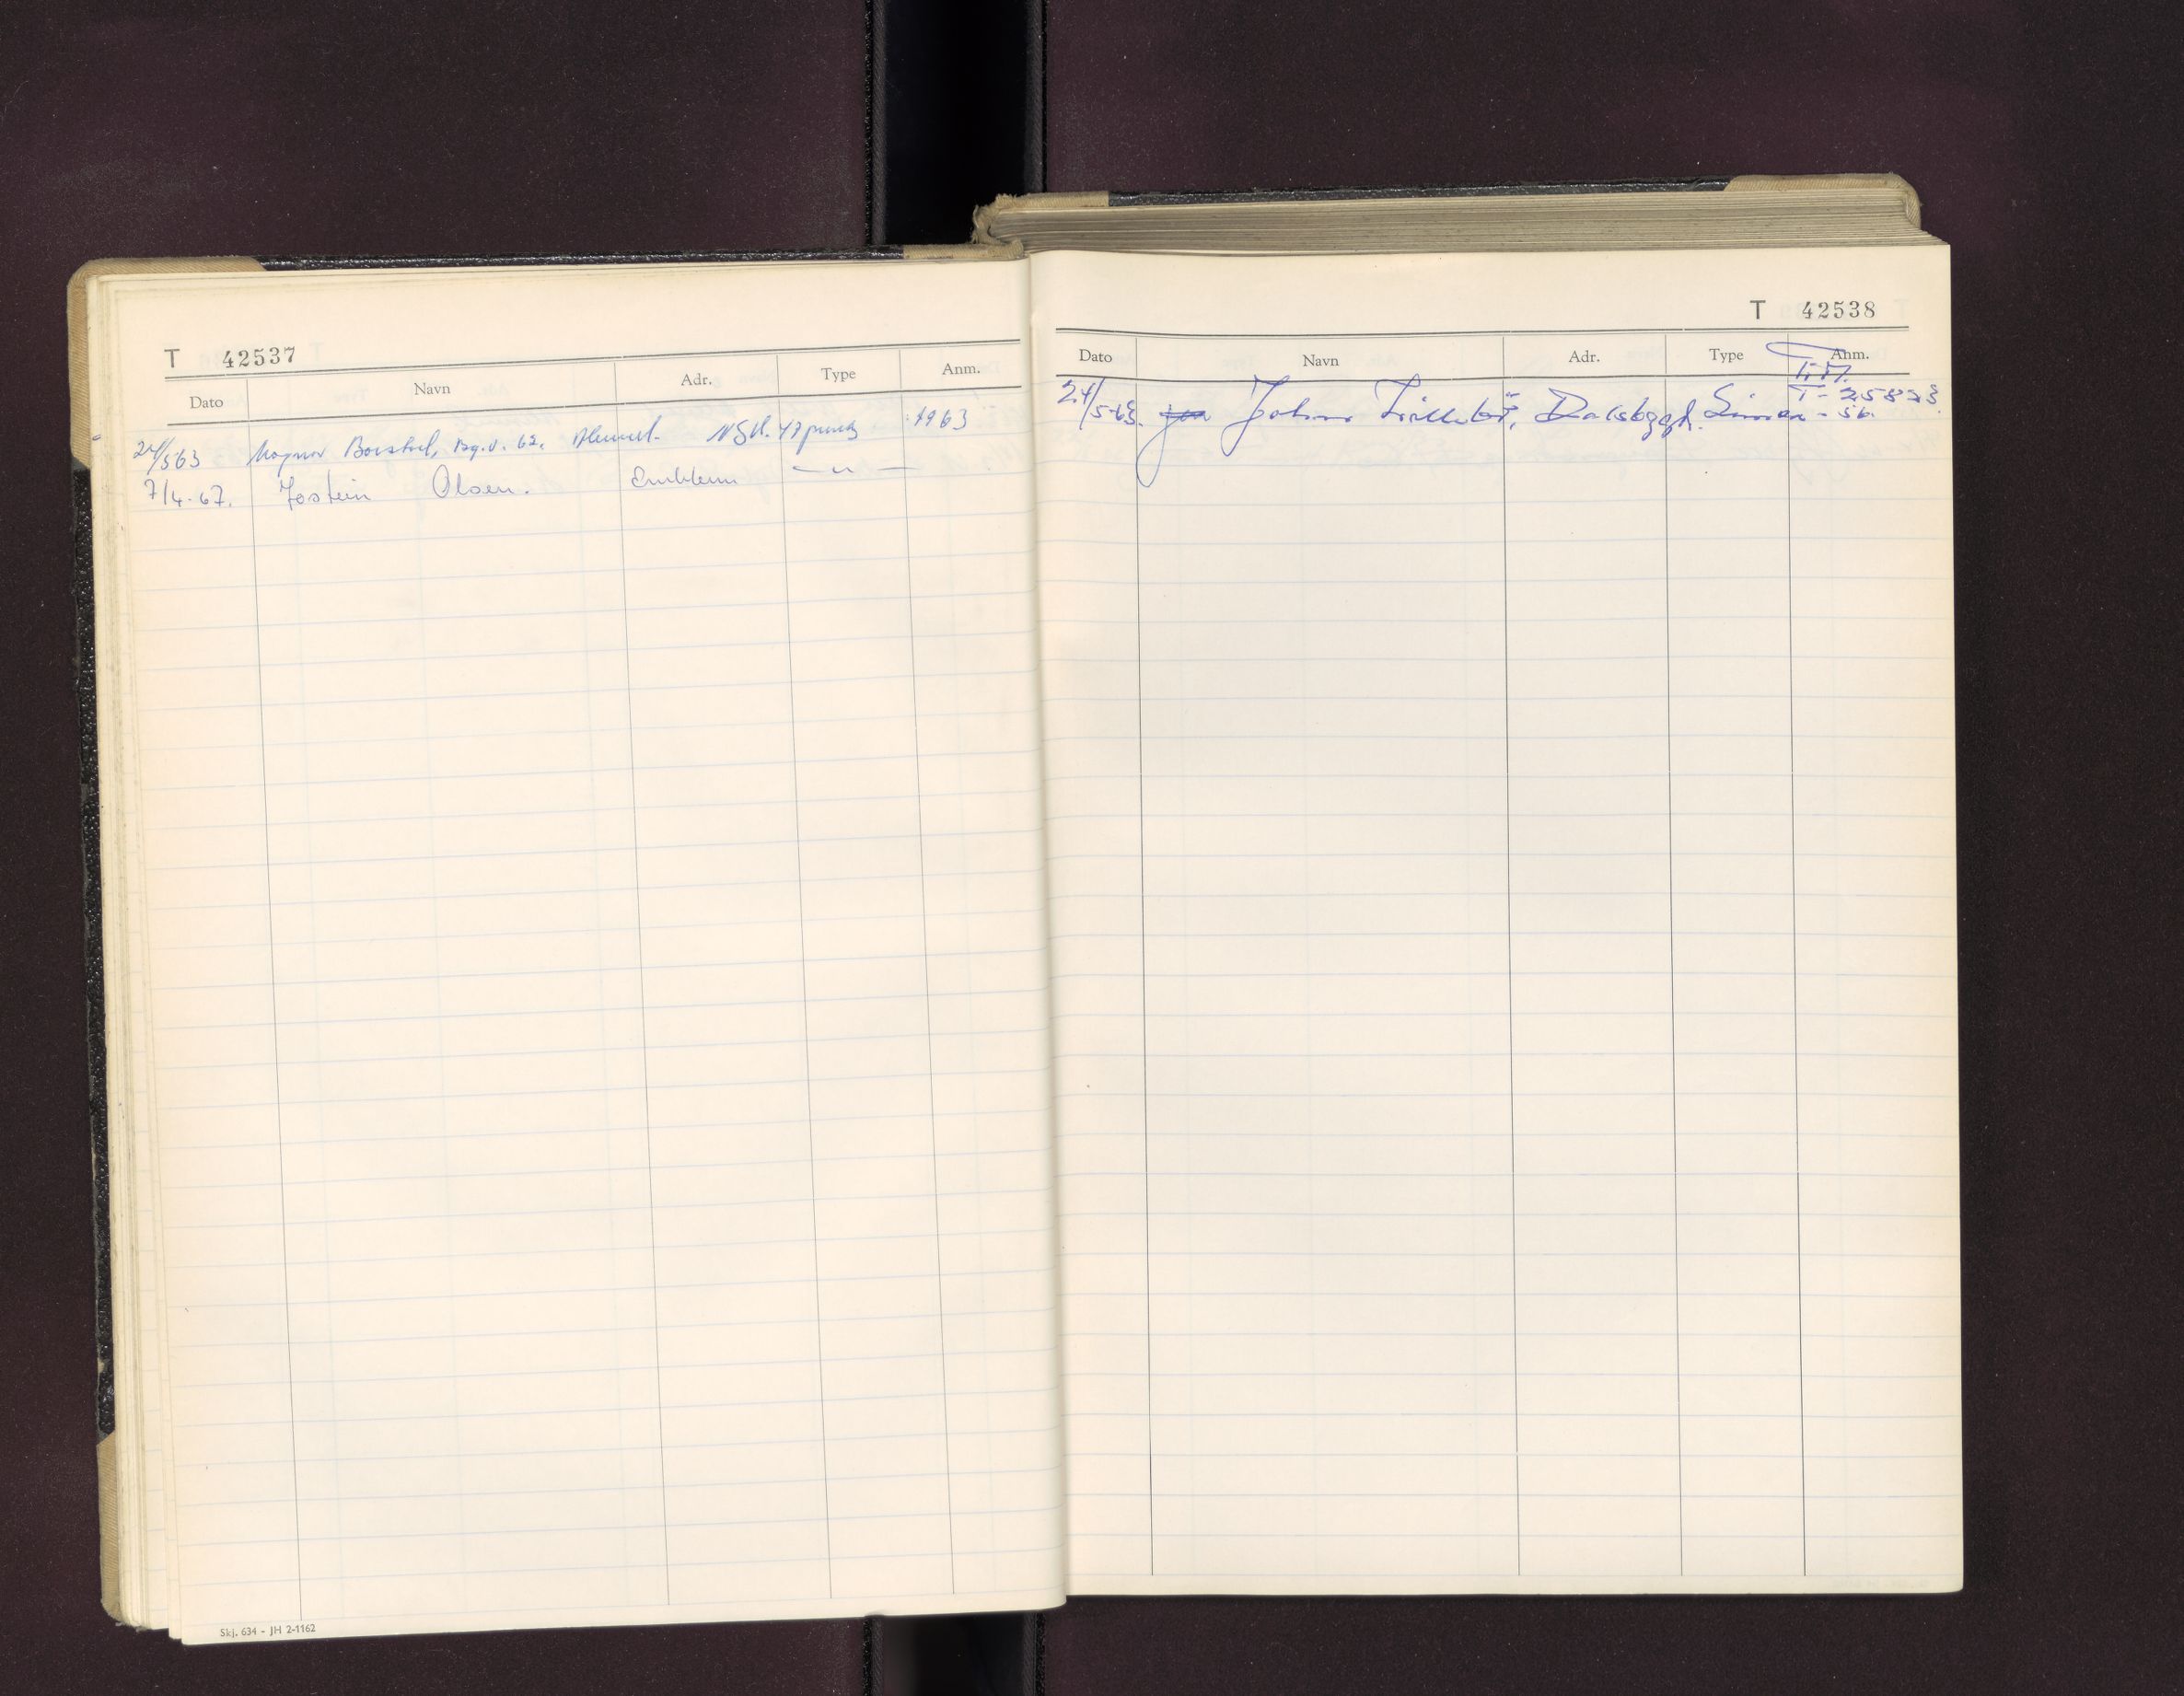 T 42537
Dato Navn Adr. Type Anm.
24/563 Magnar Borstad, Bg.v. 62. Ålesund. NSU. 47 prinz 1963
7/4-67. Jostein Olsen. Emblem — " —
Skj. 634 - JH 2-1162
T 42538
Dato Navn Adr. Type Anm.
T.M.
24/5-63. Johan Lillebø, Dalsbygd. Simca T-25823
- 56.